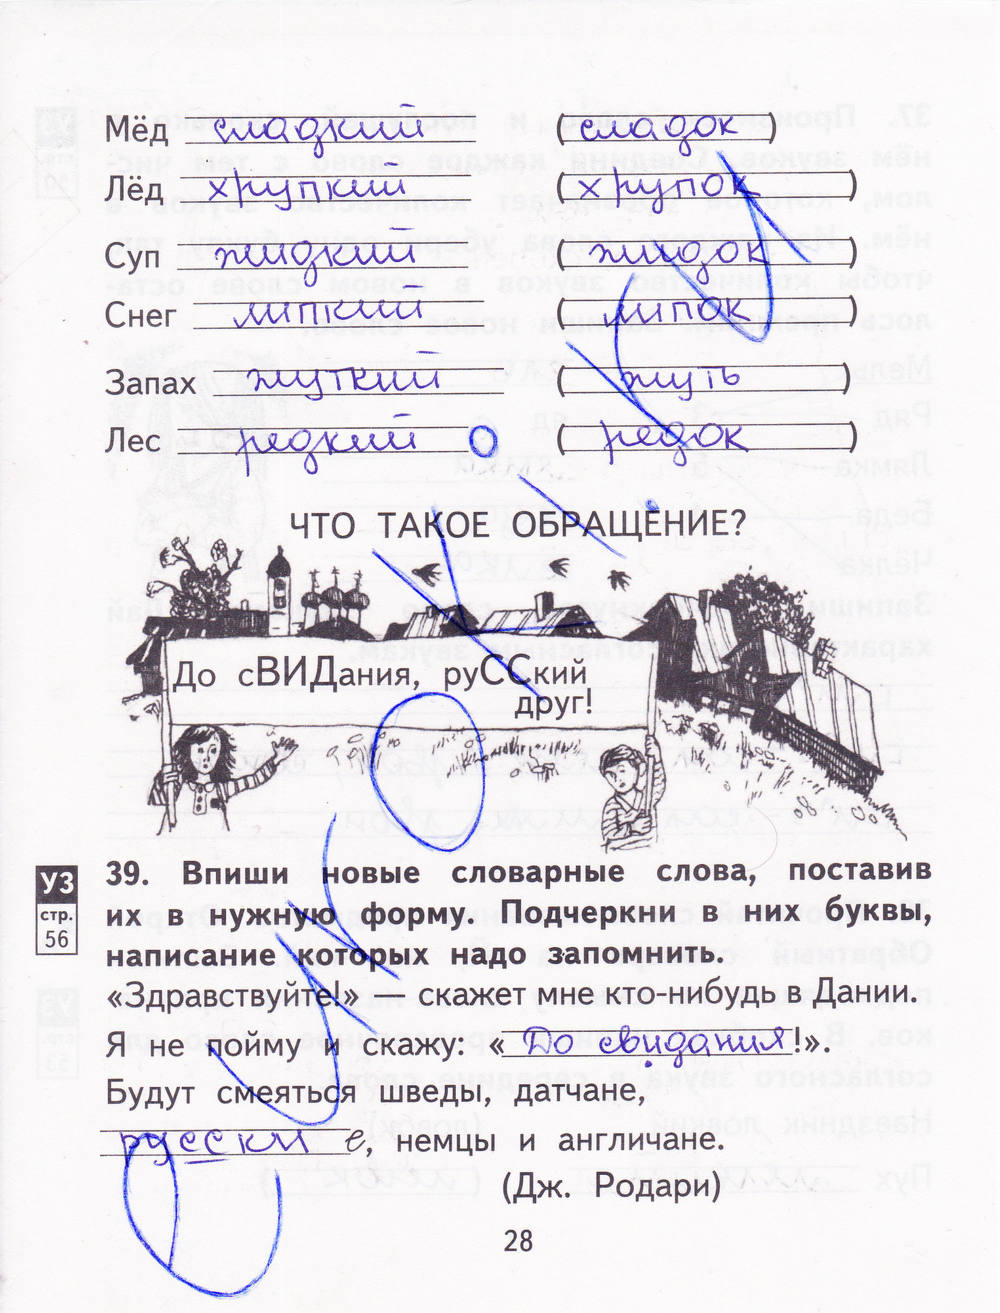 Мёд сладкий (сладок)
Лёд хрупкий (хрупок)
Суп жидкий (жидок)
Снег липкий (липок)
Запах жуткий (жуть)
Лес редкий (редок)
ЧТО ТАКОЕ ОБРАЩЕНИЕ?
До сВИДания, руССкий
друг!
УЗ
стр.
56
39. Впиши новые словарные слова, поставив
их в нужную форму. Подчеркни в них буквы,
написание которых надо запомнить.
«Здравствуйте!» — скажет мне кто-нибудь в Дании.
Я не пойму и скажу: «До свидания!».
Будут смеяться шведы, датчане,
русские, немцы и англичане.
(Дж. Родари)
28